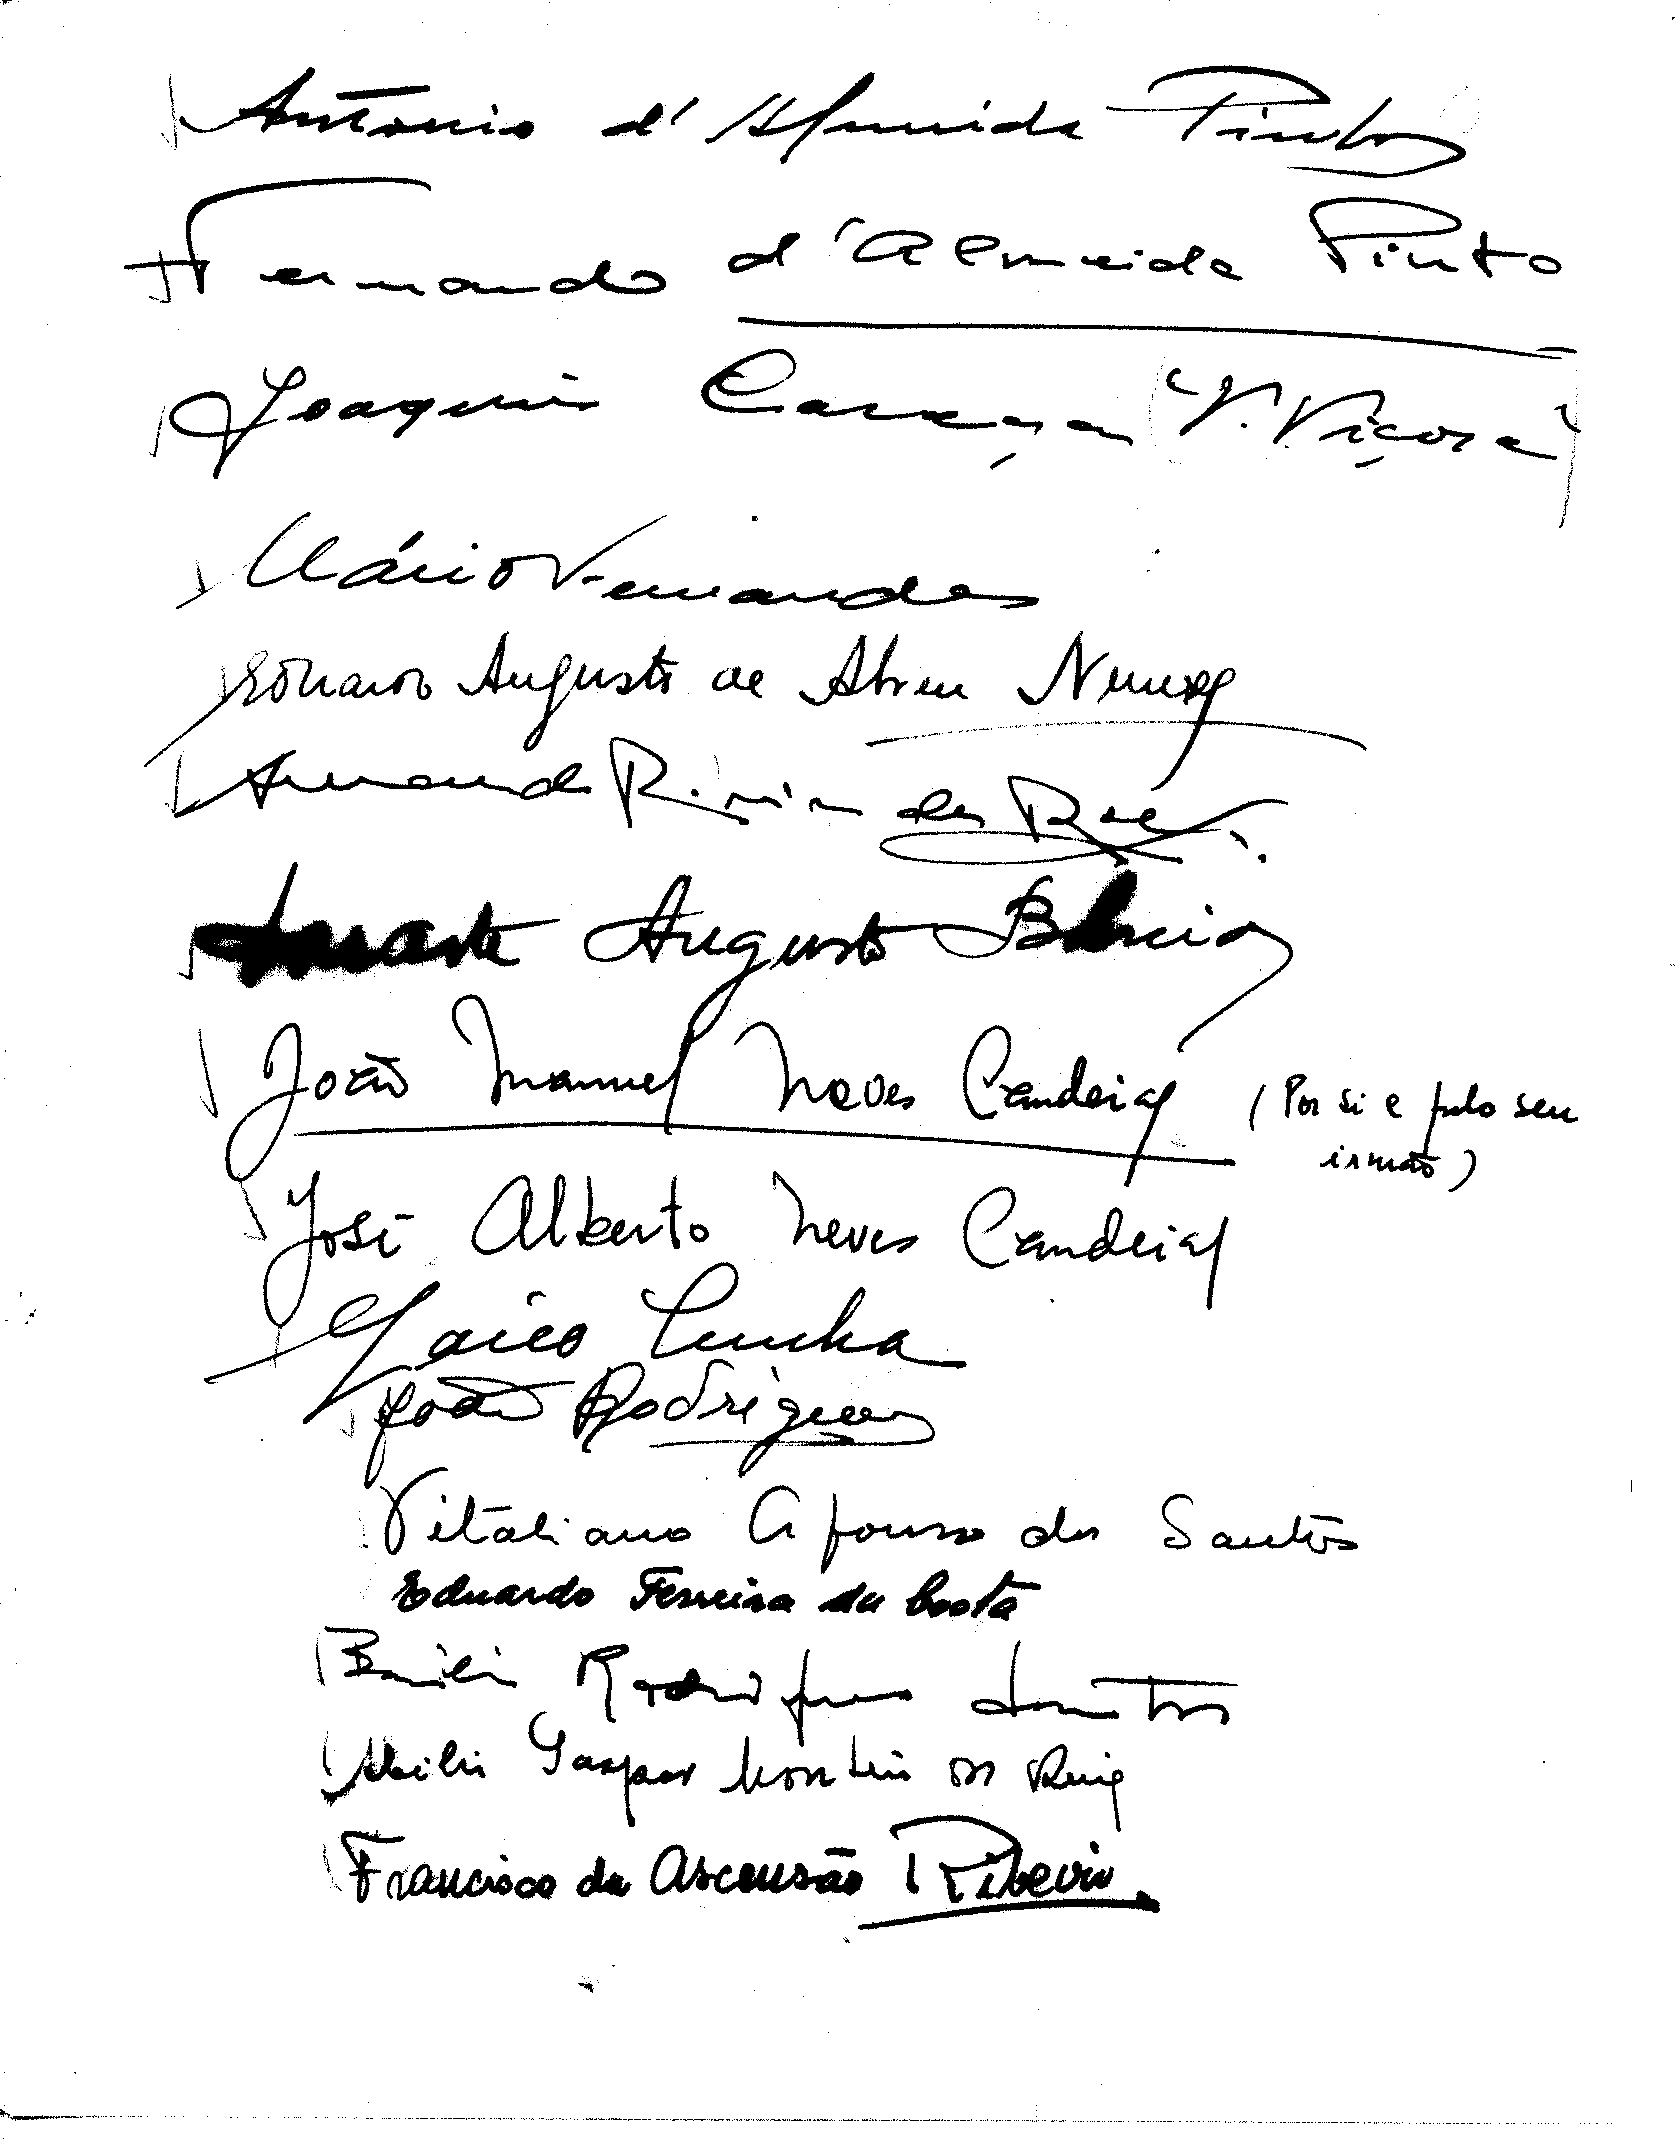 Antonio d'Almeida Pinto
Fernando d'Almeida Pinto
Joaquim (V. Viçosa)
Mário Fernandes
Eduardo Augusto de Abreu Nunes
Armando
Duarte Augusto
João Manuel Neves Candeias (Por si e pelo seu
irmão)
José Alberto Neves Candeias
Cunha
João Rodrigues
Vitaliano Afonso dos Santos
Eduardo Ferreira da Costa
Rodrigues
Abilio Gaspar
Francisco da Ascensão Ribeiro